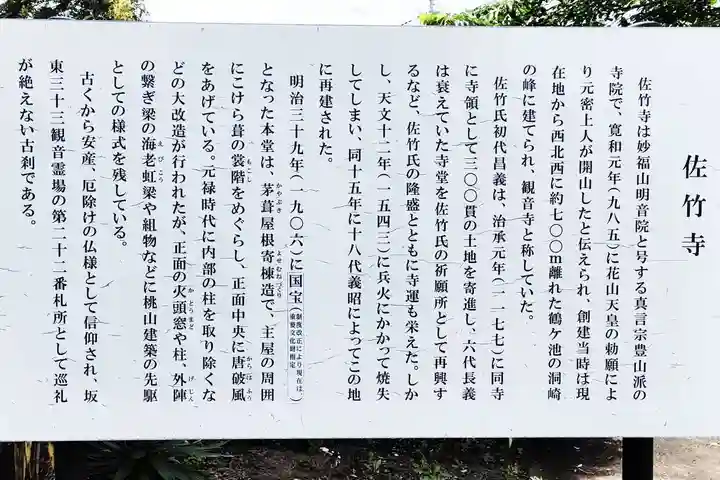 佐竹寺
佐竹寺は妙福山明音院と号する真言宗豊山派の
寺院で、寛和元年(九八五)に花山天皇の勅願によ
り元密上人が開山したと伝えられ、創建当時は現
在地から西北西に約七〇〇m離れた鶴ケ池の洞崎
の峰に建てられ、観音寺と称していた。
佐竹氏初代昌義は、治承元年(一一七七)に同寺
に寺領として三〇〇貫の土地を寄進し、六代長義
は衰えていた寺堂を佐竹氏の祈願所として再興す
るなど、佐竹氏の隆盛とともに寺運も栄えた。しか
し、天文十二年(一五四三)に兵火にかかって焼失
してしまい、同十五年に十八代義昭によってこの地
に再建された。
明治三十九年(一九〇六)に国宝(制度改正により現在は、重要文化財指定)
となった本堂は、茅葺屋根寄棟造で、主屋の周囲
かやぶき よせむねづくり
にこけら葺の裳階をめぐらし、正面中央に唐破風
もこし からはふ
をあげている。元禄時代に内部の柱を取り除くな
どの大改造が行われたが、正面の火頭窓や柱、外陣
かとうまど げじん
の繋ぎ梁の海老虹梁や組物などに桃山建築の先駆
えびこう
としての様式を残している。
古くから安産、厄除けの仏様として信仰され、坂
東三十三観音霊場の第二十二番札所として巡礼
が絶えない古刹である。